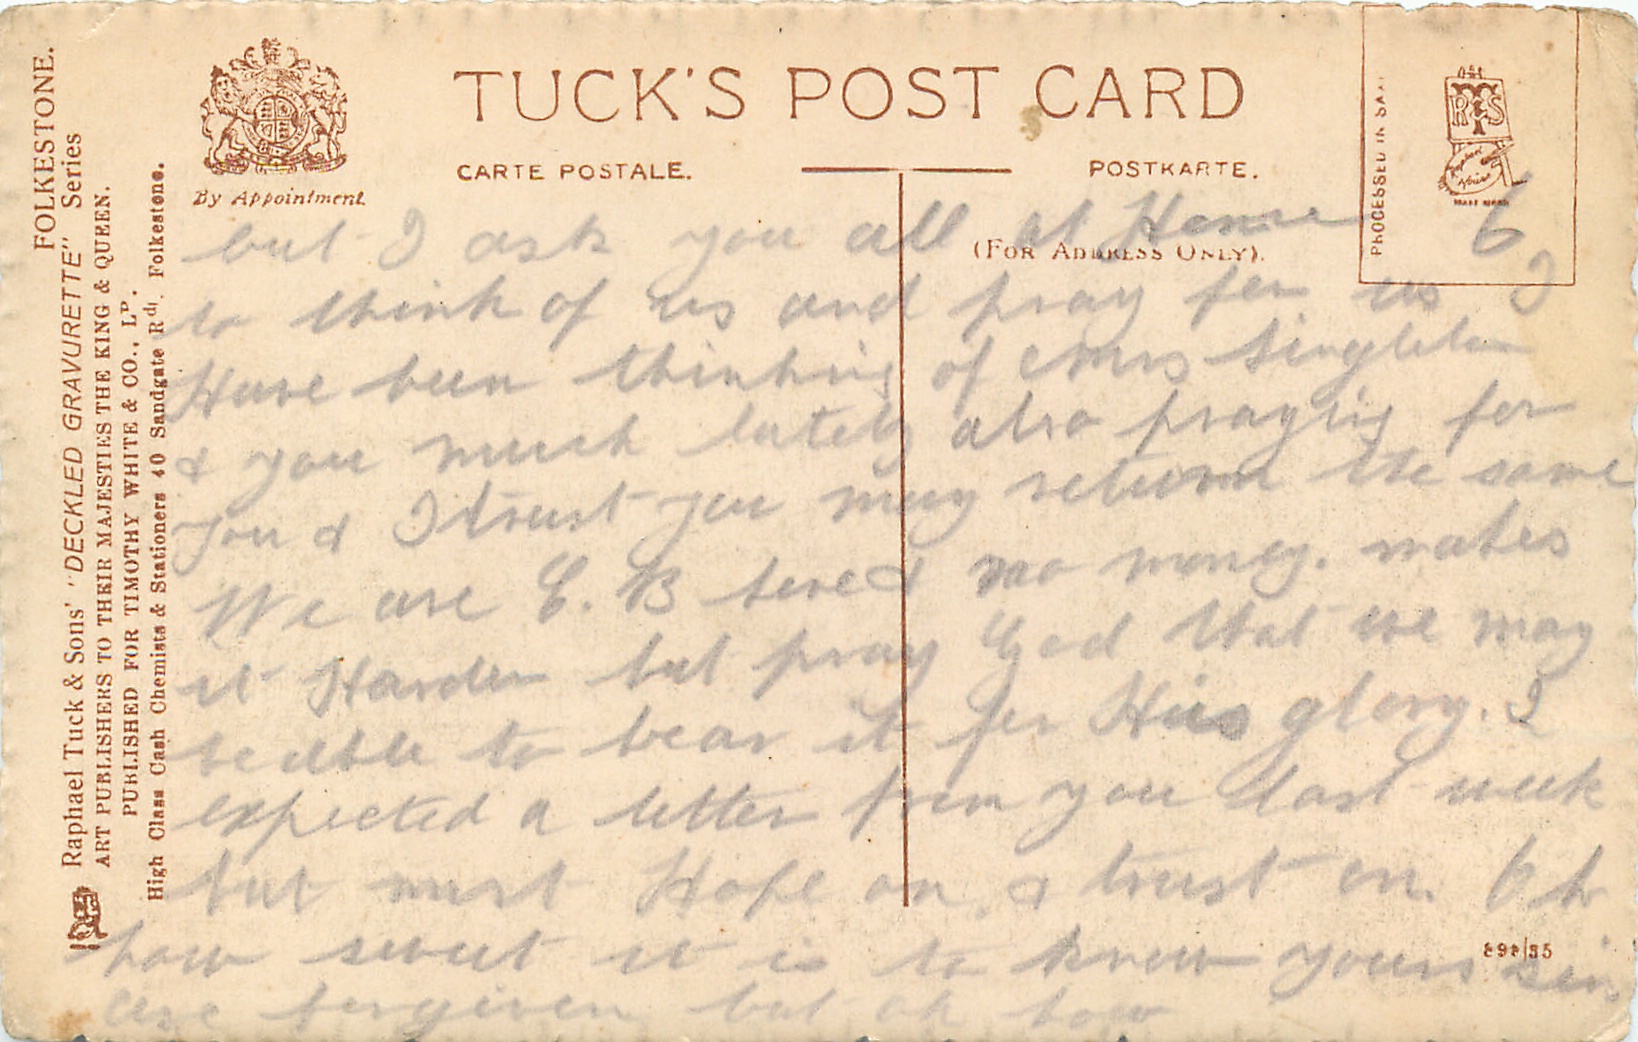 FOLKESTONE.
Raphael Tuck & Sons' "DECKLED GRAVURETTE" Series
ART PUBLISHERS TO THEIR MAJESTIES THE KING & QUEEN.
PUBLISHED FOR TIMOTHY WHITE & CO., LD.
High Class Cash Chemists & Stationers 40 Sandgate Rd. Folkestone.
By Appointment
TUCK'S POST CARD
CARTE POSTALE.
POSTKARTE.
(FOR ADDRESS ONLY).
PROCESSED IN
R T S
6
but I ask you all at Home
to think of us and pray for us I
Have been thinking of Mrs Singleton
& you much lately also praying for
you & I trust you may return the same
We are C. B here & no money. makes
it Harder but pray God that we may
be able to bear it for His glory. I
expected a letter from you last week
but must Hope on & trust on. Oh
how sweet it is to know yours sin
are forgiven but oh how